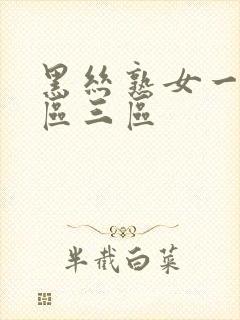 黑丝熟女一
区三区
半截白菜